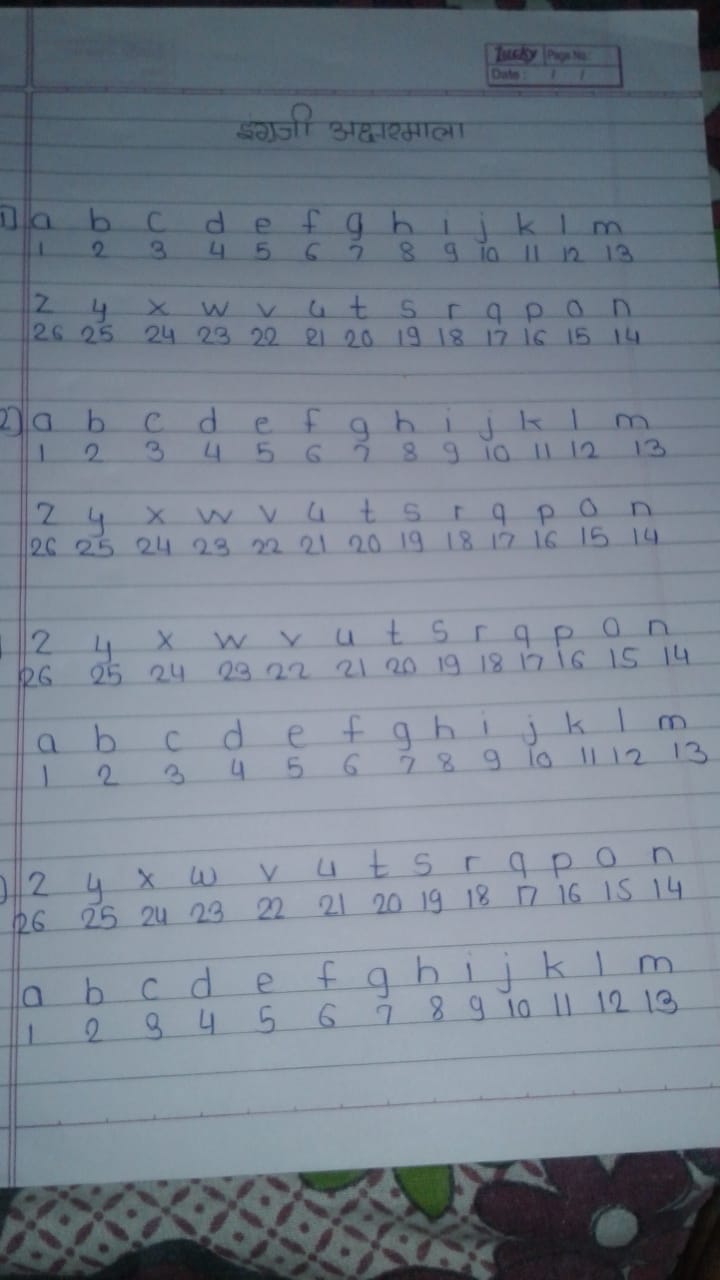 Lucky Page No.
Date : / /
इंग्रजी अक्षरमाला
1) a b c d e f g h i j k l m
1 2 3 4 5 6 7 8 9 10 11 12 13
z y x w v u t s r q p o n
26 25 24 23 22 21 20 19 18 17 16 15 14
2) a b c d e f g h i j k l m
1 2 3 4 5 6 7 8 9 10 11 12 13
z y x w v u t s r q p o n
26 25 24 23 22 21 20 19 18 17 16 15 14
z y x w v u t s r q p o n
26 25 24 23 22 21 20 19 18 17 16 15 14
a b c d e f g h i j k l m
1 2 3 4 5 6 7 8 9 10 11 12 13
z y x w v u t s r q p o n
26 25 24 23 22 21 20 19 18 17 16 15 14
a b c d e f g h i j k l m
1 2 3 4 5 6 7 8 9 10 11 12 13